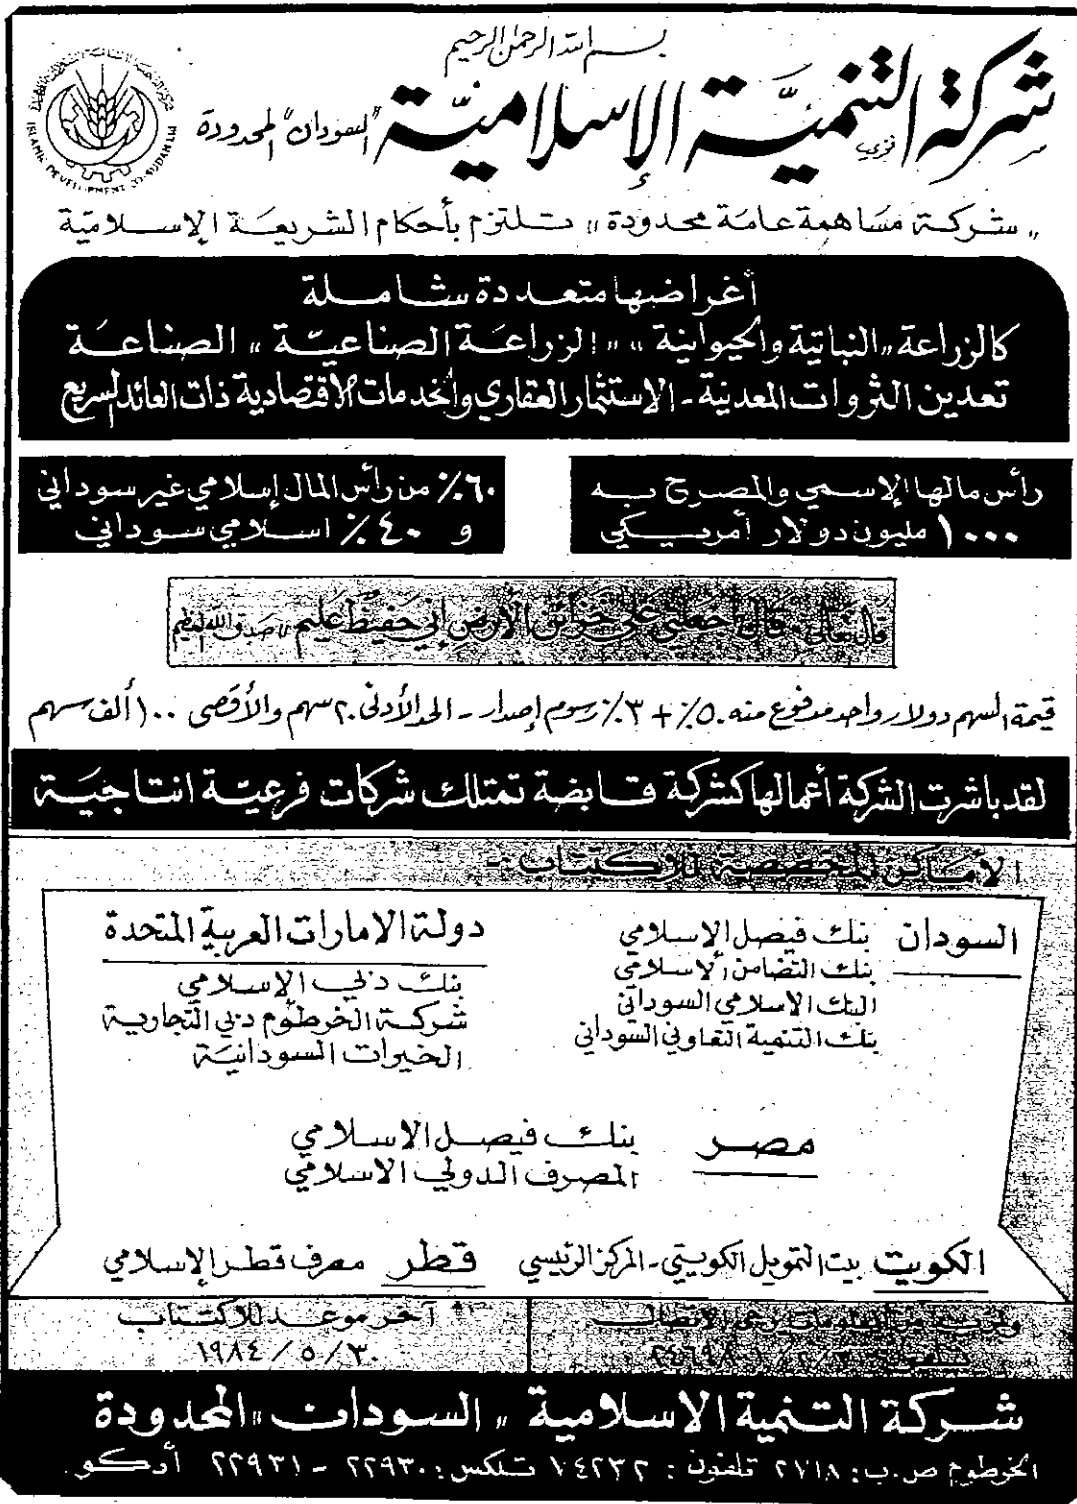 بسم الله الرحمن الرحيم
شركة التنمية الإسلامية "السودان" المحدودة
فوزي
ISLAMIC DEVELOPMENT CO. SUDAN LTD
"شركة مساهمة عامة محدودة" تلتزم بأحكام الشريعة الإسلامية
أغراضها متعددة شاملة
كالزراعة "النباتية والحيوانية" "الزراعة الصناعية" الصناعة
تعدين الثروات المعدنية - الإستثمار العقاري والخدمات الاقتصادية ذات العائد السريع
رأس مالها الإسمي والمصرح به
١٠٠٠ مليون دولار أمريكي
٦٠٪ من رأس المال إسلامي غير سوداني
و ٤٠٪ اسلامي سوداني
قال تعالى: قال اجعلني على خزائن الأرض إني حفيظ عليم صدق الله العظيم
قيمة السهم دولار واحد مدفوع منه ٥٠٪ + ٣٪ رسوم إصدار - الحد الأدنى ٢٠ سهم والأقصى ١٠٠ ألف سهم
لقد باشرت الشركة أعمالها كشركة قابضة تمتلك شركات فرعية انتاجية
الأماكن المخصصة للاكتتاب:-
السودان
بنك فيصل الإسلامي
بنك التضامن الاسلامي
البنك الاسلامي السوداني
بنك التنمية التعاوني السوداني
دولة الامارات العربية المتحدة
بنك دبي الإسلامي
شركة الخرطوم دبي التجارية
الخيرات السودانية
مصر
بنك فيصل الاسلامي
المصرف الدولي الاسلامي
الكويت بيت التمويل الكويتي - المركز الرئيسي
قطر مصرف قطر الإسلامي
ولمزيد من المعلومات يرجى الاتصال
آخر موعد للاكتتاب
٣٠ / ٥ / ١٩٨٤
شركة التنمية الاسلامية "السودان" المحدودة
الخرطوم ص.ب: ٢٧١٨ تلفون: ٧٤٢٣٢ تلكس: ٢٢٩٣٠ - ٢٢٩٣١ أدكو